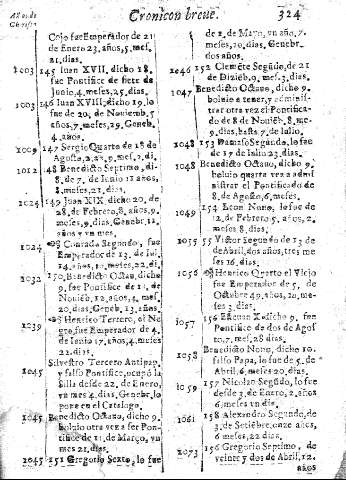 Años de Christo.
Cronicon breue.
324
Coxo fue Emperador de 21
de Enero 23, años, 5, mes.
21, dias.
1003 145 Iuan XVII. dicho 18.
fue Pontifice de siete de
Iunio, 4, meses, 25, dias.
1003 146 Iuan XVIII. dicho 19, lo
fue de 20, de Nouiemb, 5
años, 7, meses, 29, Genеb.
4, años.
1009 147 Sergio Quarto de 18 de
Agosto, 2, a.
1012 148 Benedicto Septimo, di-
8, de 7, de Iunio 11 años,
meses, 21, dias.
1024 149 Iuan XIX. dicho 20, de
28, de Febrero, 8, años, 9,
meses, 9, dias, Genebr, 11,
años y vn mes.
1024 Conrado Segundo, fue
Emperador de 13, de Iul.
14, años,
1032 150 Benedicto Octauo, dicho
9, fue Pontifice de 11, de
Nouieb, 12, años, 4, mes.
20, dias, Geneb. 13, años.
1039 Henrico Tercero, el Ne
gro, fue Emperador de 4,
de Iunio 17, años, 4, meses
22, dias.
1045 Siluestro Tercero Antipap,
y falso Pontifice, ocupó la
Silla desde 22, de Enero,
vn mes 4, dias, Genebr, lo
pone en el Catalogo.
1045 Benedicto Octauo, dicho 9.
boluio otra vez a ser Pon-
tifice de 11, de Março, vn
mes 21, dias.
1045 151 Gregorio Sexto, lo fue
de 1, de Mayo, vn año, 7,
meses, 20, dias, Genebr.
dos años.
1046 152 Clemete Segūdo, de 21
de Diziēb, 9, mes, 3, dias.
1047 Benedicto Octauo, dicho 9.
boluio a tener, y adminis-
trar otra vez el Pontifica-
do de 8 de Nouieb, 8, me-
9, dias, hasta 7, de Iulio.
1048 153 Damaso Segundo, lo fue
de 17 de Iulio 23, dias.
1048 Benedicto Octauo, dicho 9.
boluio quarta vez a admi
nistrar el Pontificado de
8, de Agosto, 6, meses.
1049 154 Leon Nono, lo fue de
12, de Febrero, 5, años, 2,
meses 8, dias.
1055 155 Victor Segundo de 13 de
de Abril, dos años, tres me
ses 16, dias.
1056 Henrico Quarto el Viejo
fue Emperador de 5, de
Octubre 49, años, 10, me-
ses 3, dias.
1057 156 Esteuan X. dicho 9, fue
Pontifice de dos de Agos
to, 7, mes, 28, dias.
1058 Benedicto Nono, dicho 10.
falso Papa, lo fue de 5, de
Abril, 6, meses 20, dias.
1059 157 Nicolao Segūdo, lo fue
desde 3, de Enero, 2, años,
6, meses vn dia.
1061 158 Alexandro Segundo, de
3, de Setiēbre, onze años,
6, meses, 22, dias.
1073 156 Gregorio Septimo, de
veinte y dos de Abril, 12,
años